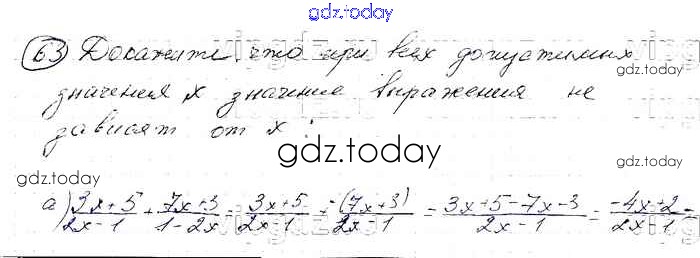 gdz.today
63 Докажите, что при всех допустимых
gdz.today
значениях x значение выражения не
зависят от x:
gdz.today
gdz.today
а) \frac{3x+5}{2x-1} + \frac{7x+3}{1-2x} = \frac{3x+5}{2x-1} + \frac{-(7x+3)}{2x-1} = \frac{3x+5-7x-3}{2x-1} = \frac{-4x+2}{2x-1} =
gdz.today
gdz.today